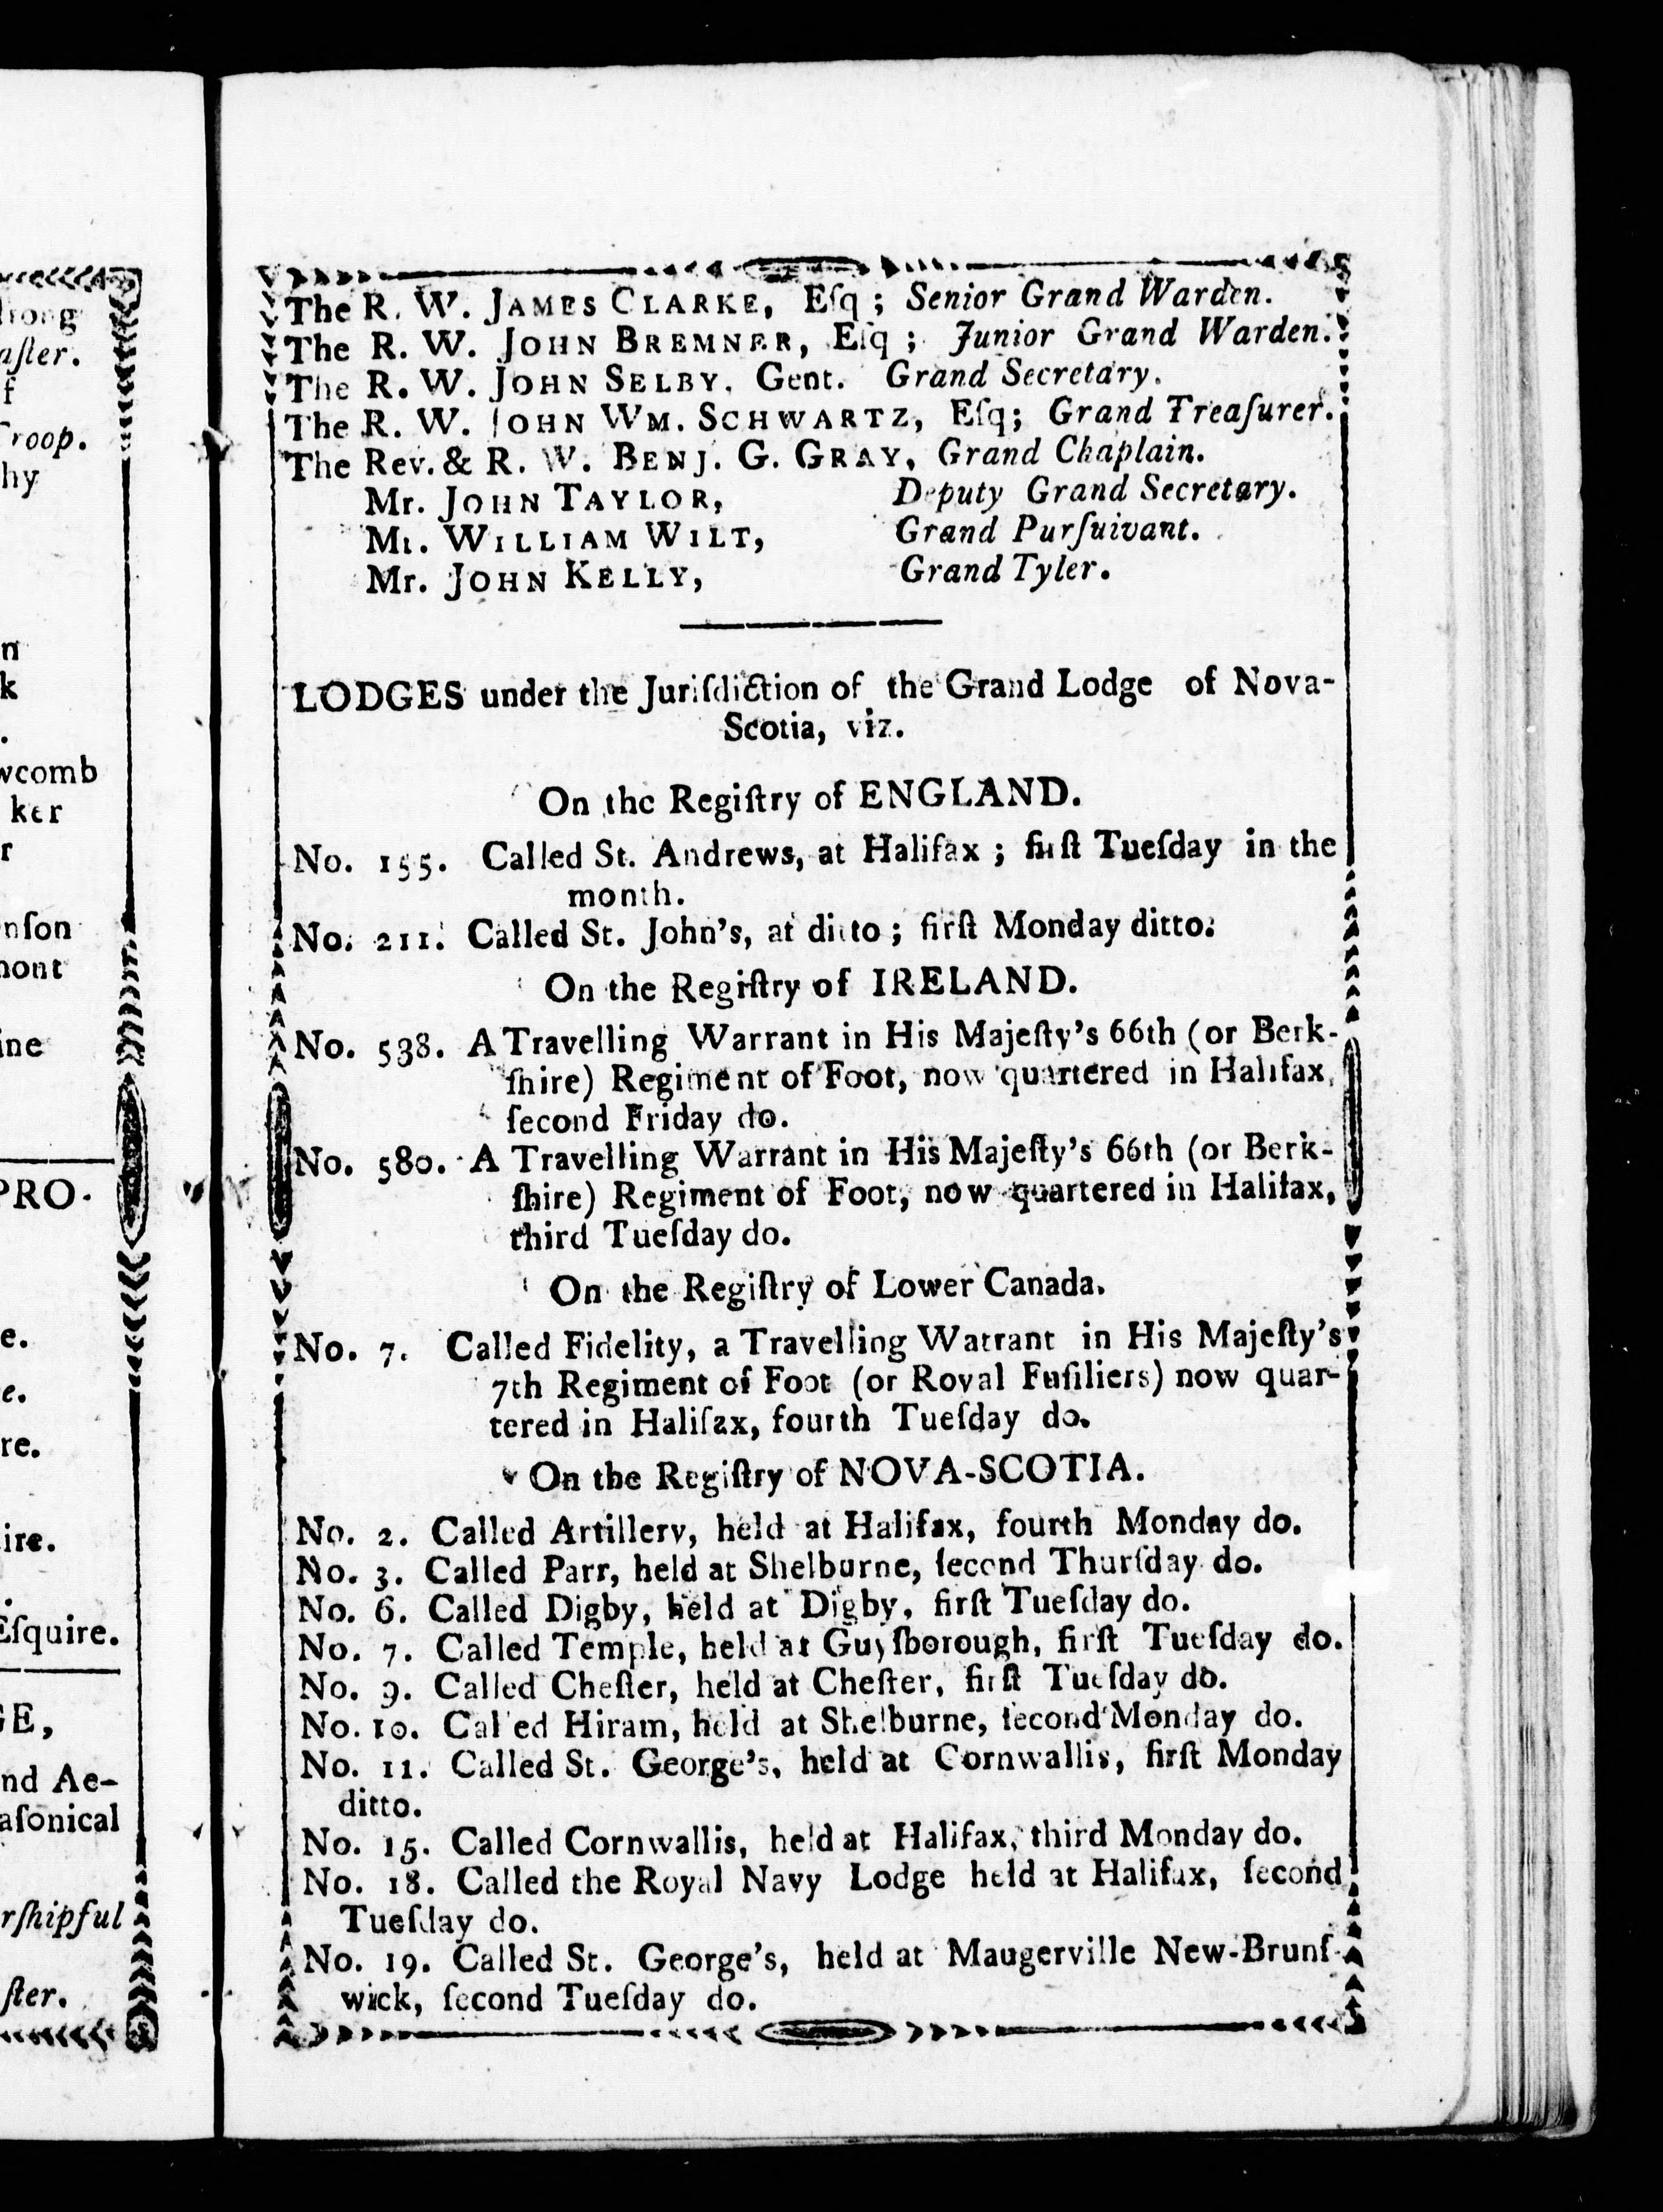 rong
aſter.
f
Troop.
hy
n
k
.
wcomb
ker
r
nſon
mont
ine
PRO-
e.
e.
re.
ire.
Eſquire.
GE,
nd Ae-
aſonical
rſhipful
ſter.
The R. W. JAMES CLARKE, Eſq; Senior Grand Warden.
The R. W. JOHN BREMNER, Eſq; Junior Grand Warden.
The R. W. JOHN SELBY. Gent. Grand Secretary.
The R. W. JOHN WM. SCHWARTZ, Eſq; Grand Treaſurer.
The Rev. & R. W. BENJ. G. GRAY, Grand Chaplain.
Mr. JOHN TAYLOR, Deputy Grand Secretary.
Mr. WILLIAM WILT, Grand Purſuivant.
Mr. JOHN KELLY, Grand Tyler.
LODGES under the Juriſdiction of the Grand Lodge of Nova-
Scotia, viz.
On the Regiſtry of ENGLAND.
No. 155. Called St. Andrews, at Halifax; firſt Tueſday in the
month.
No. 211. Called St. John's, at ditto; firſt Monday ditto.
On the Regiſtry of IRELAND.
No. 538. A Travelling Warrant in His Majeſty's 66th (or Berk-
ſhire) Regiment of Foot, now quartered in Halifax,
ſecond Friday do.
No. 580. A Travelling Warrant in His Majeſty's 66th (or Berk-
ſhire) Regiment of Foot, now quartered in Halifax,
third Tueſday do.
On the Regiſtry of Lower Canada.
No. 7. Called Fidelity, a Travelling Warrant in His Majeſty's
7th Regiment of Foot (or Royal Fuſiliers) now quar-
tered in Halifax, fourth Tueſday do.
On the Regiſtry of NOVA-SCOTIA.
No. 2. Called Artillery, held at Halifax, fourth Monday do.
No. 3. Called Parr, held at Shelburne, ſecond Thurſday do.
No. 6. Called Digby, held at Digby, firſt Tueſday do.
No. 7. Called Temple, held at Guyſborough, firſt Tueſday do.
No. 9. Called Cheſter, held at Cheſter, firſt Tueſday do.
No. 10. Called Hiram, held at Shelburne, ſecond Monday do.
No. 11. Called St. George's, held at Cornwallis, firſt Monday
ditto.
No. 15. Called Cornwallis, held at Halifax, third Monday do.
No. 18. Called the Royal Navy Lodge held at Halifax, ſecond
Tueſday do.
No. 19. Called St. George's, held at Maugerville New-Brunſ-
wick, ſecond Tueſday do.